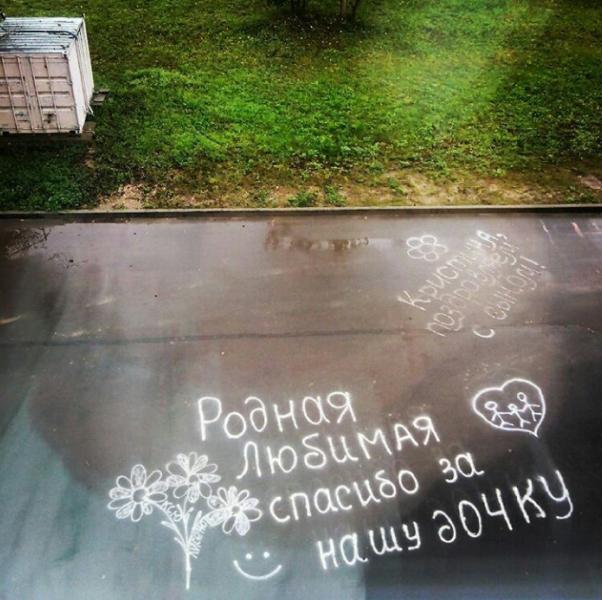 Кристина,
поздравляем
с сыном!
Родная
Любимая
спасибо за
нашу дочку